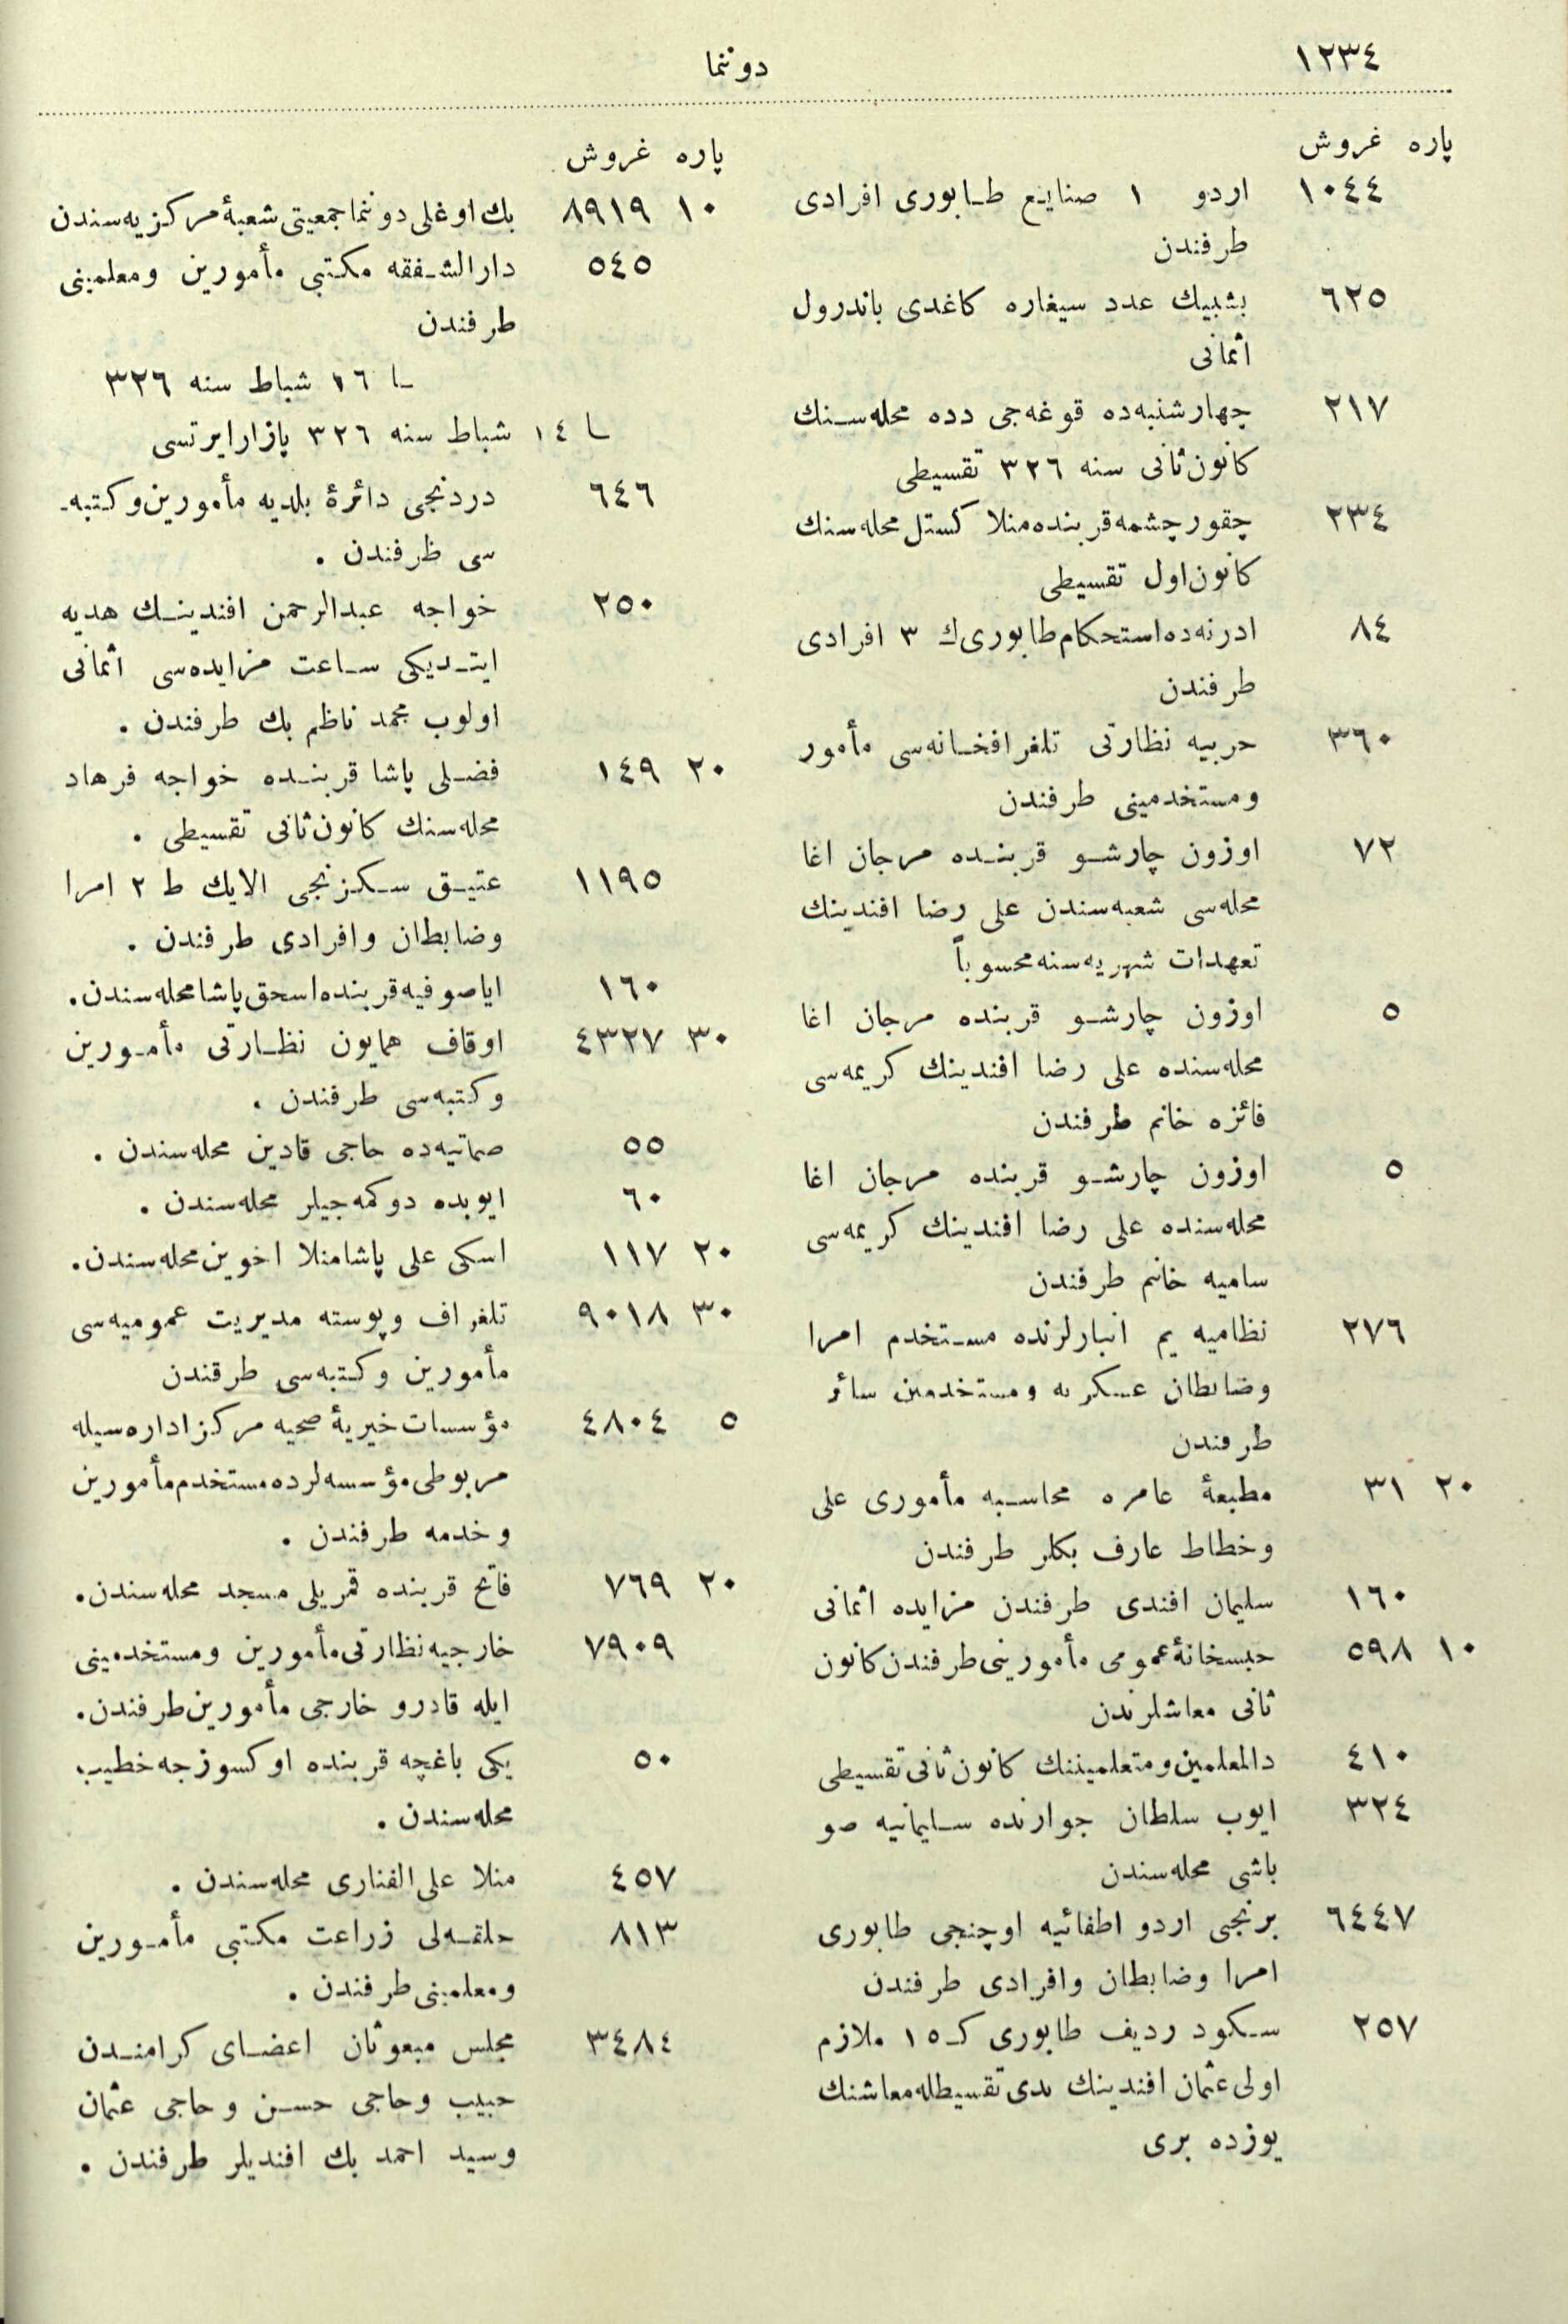 ١٢٣٤
دوننما
پاره غروش
١٠٤٤ اردو ١ صنایع طابوری افرادی
طرفندن
٦٢٥ بشبیك عدد سیغاره كاغدی باندرول
اثمانی
٢١٧ چهارشنبه‌ده قوغه‌جی دده محله‌سنك
كانون ثانی سنه ٣٢٦ تقسیطی
٢٣٤ چقور چشمه قربنده منلا كستل محله‌سنك
كانون اول تقسیطی
٨٤ ادرنه‌ده استحكام طابوری ك ٣ افرادی
طرفندن
٣٦٠ حربیه نظارتی تلغرافخانه‌سی مأمور
ومستخدمینی طرفندن
٧٢ اوزون چارشو قربنده مرجان اغا
محله‌سی شعبه‌سندن علی رضا افندینك
تعهدات شهریه‌سنه محسوباً
٥ اوزون چارشو قربنده مرجان اغا
محله‌سنده علی رضا افندینك كریمه‌سی
فائزه خانم طرفندن
٥ اوزون چارشو قربنده مرجان اغا
محله‌سنده علی رضا افندینك كریمه‌سی
سامیه خانم طرفندن
٢٧٦ نظامیه یم انبارلرنده مستخدم امرا
وضابطان عسكریه ومستخدمین سائر
طرفندن
٢٠ ٣١ مطبعۀ عامره محاسبه مأموری علی
وخطاط عارف بكلر طرفندن
١٦٠ سلیمان افندی طرفندن مزایده اثمانی
١٠ ٥٩٨ حبسخانۀ عمومی مأمورینی طرفندن كانون
ثانی معاشلرندن
٤١٠ دالمعلمین ومتعلمیننك كانون ثانی تقسیطی
٣٢٤ ایوب سلطان جوارنده سلیمانیه صو
باشی محله‌سندن
٦٤٤٧ برنجی اردو اطفائیه اوچنجی طابوری
امرا وضابطان وافرادی طرفندن
٢٥٧ سكود ردیف طابوری ك ١٥ ملازم
اولی عثمان افندینك یدی تقسیطله معاشنك
یوزده بری
پاره غروش
١٠ ٨٩١٩ بك اوغلی دوننما جمعیتی شعبۀ مركزیه‌سندن
٥٤٥ دارالشفقه مكتبی مأمورین ومعلمینی
طرفندن
١٦ شباط سنه ٣٢٦
١٤ شباط سنه ٣٢٦ پازار ایرتسی
٦٤٦ دردنجی دائرۀ بلدیه مأمورین وكتبه‌-
سی طرفندن .
٢٥٠ خواجه عبدالرحمن افندینك هدیه
ایتدیكی ساعت مزایده‌سی اثمانی
اولوب محمد ناظم بك طرفندن .
٢٠ ١٤٩ فضلی پاشا قربنده خواجه فرهاد
محله‌سنك كانون ثانی تقسیطی .
١١٩٥ عتیق سكزنجی الایك ط ٢ امرا
وضابطان وافرادی طرفندن .
١٦٠ ایاصوفیه قربنده اسحق پاشا محله‌سندن.
٣٠ ٤٣٢٧ اوقاف همایون نظارتی مأمورین
وكتبه‌سی طرفندن .
٥٥ صماتیه‌ده حاجی قادین محله‌سندن .
٦٠ ایوبده دوكمه‌جیلر محله‌سندن .
٢٠ ١١٧ اسكی علی پاشا منلا اخوین محله‌سندن.
٣٠ ٩٠١٨ تلغراف وپوسته مدیریت عمومیه‌سی
مأمورین وكتبه‌سی طرقندن
٥ ٤٨٠٤ مؤسسات خیریۀ صحیه مركز اداره‌سیله
مربوطی مؤسسه‌لرده مستخدم مأمورین
وخدمه طرفندن .
٢٠ ٧٦٩ فاتح قربنده قمریلی مسجد محله‌سندن.
٧٩٠٩ خارجیه نظارتی مأمورین ومستخدمینی
ایله قادرو خارجی مأمورین طرفندن.
٥٠ یكی باغچه قربنده اوكسوزجه خطیب
محله‌سندن .
٤٥٧ منلا علی الفناری محله‌سندن .
٨١٣ حلقه‌لی زراعت مكتبی مأمورین
ومعلمینی طرفندن .
٣٤٨٤ مجلس مبعوثان اعضای كرامندن
حبیب وحاجی حسن وحاجی عثمان
وسید احمد بك افندیلر طرفندن .